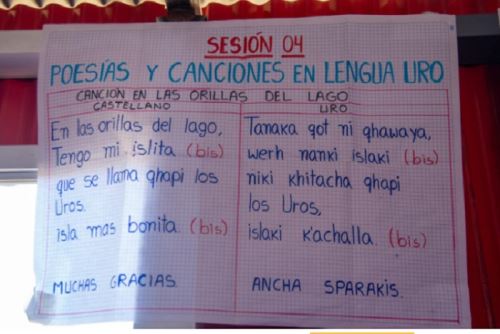 SESIÓN 04
POESÍAS Y CANCIONES EN LENGUA URO
CANCIÓN EN LAS ORILLAS DEL LAGO
CASTELLANO
En las orillas del lago,
Tengo mi islita (bis)
que se llama qhapi los
Uros.
isla mas bonita. (bis)
MUCHAS GRACIAS.
URO
Tanaka qot ni qhawaya,
werh nanki islaki (bis)
niki khitacha qhapi
los Uros,
islaki k'achalla. (bis)
ANCHA SPARAKIS.